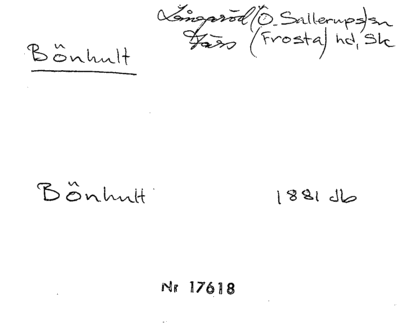 Långaröd/Ö. Sallerups/sn
Bönhult Färs (Frosta) hd, Sk
Bönhult 1881 db
Nr 17618